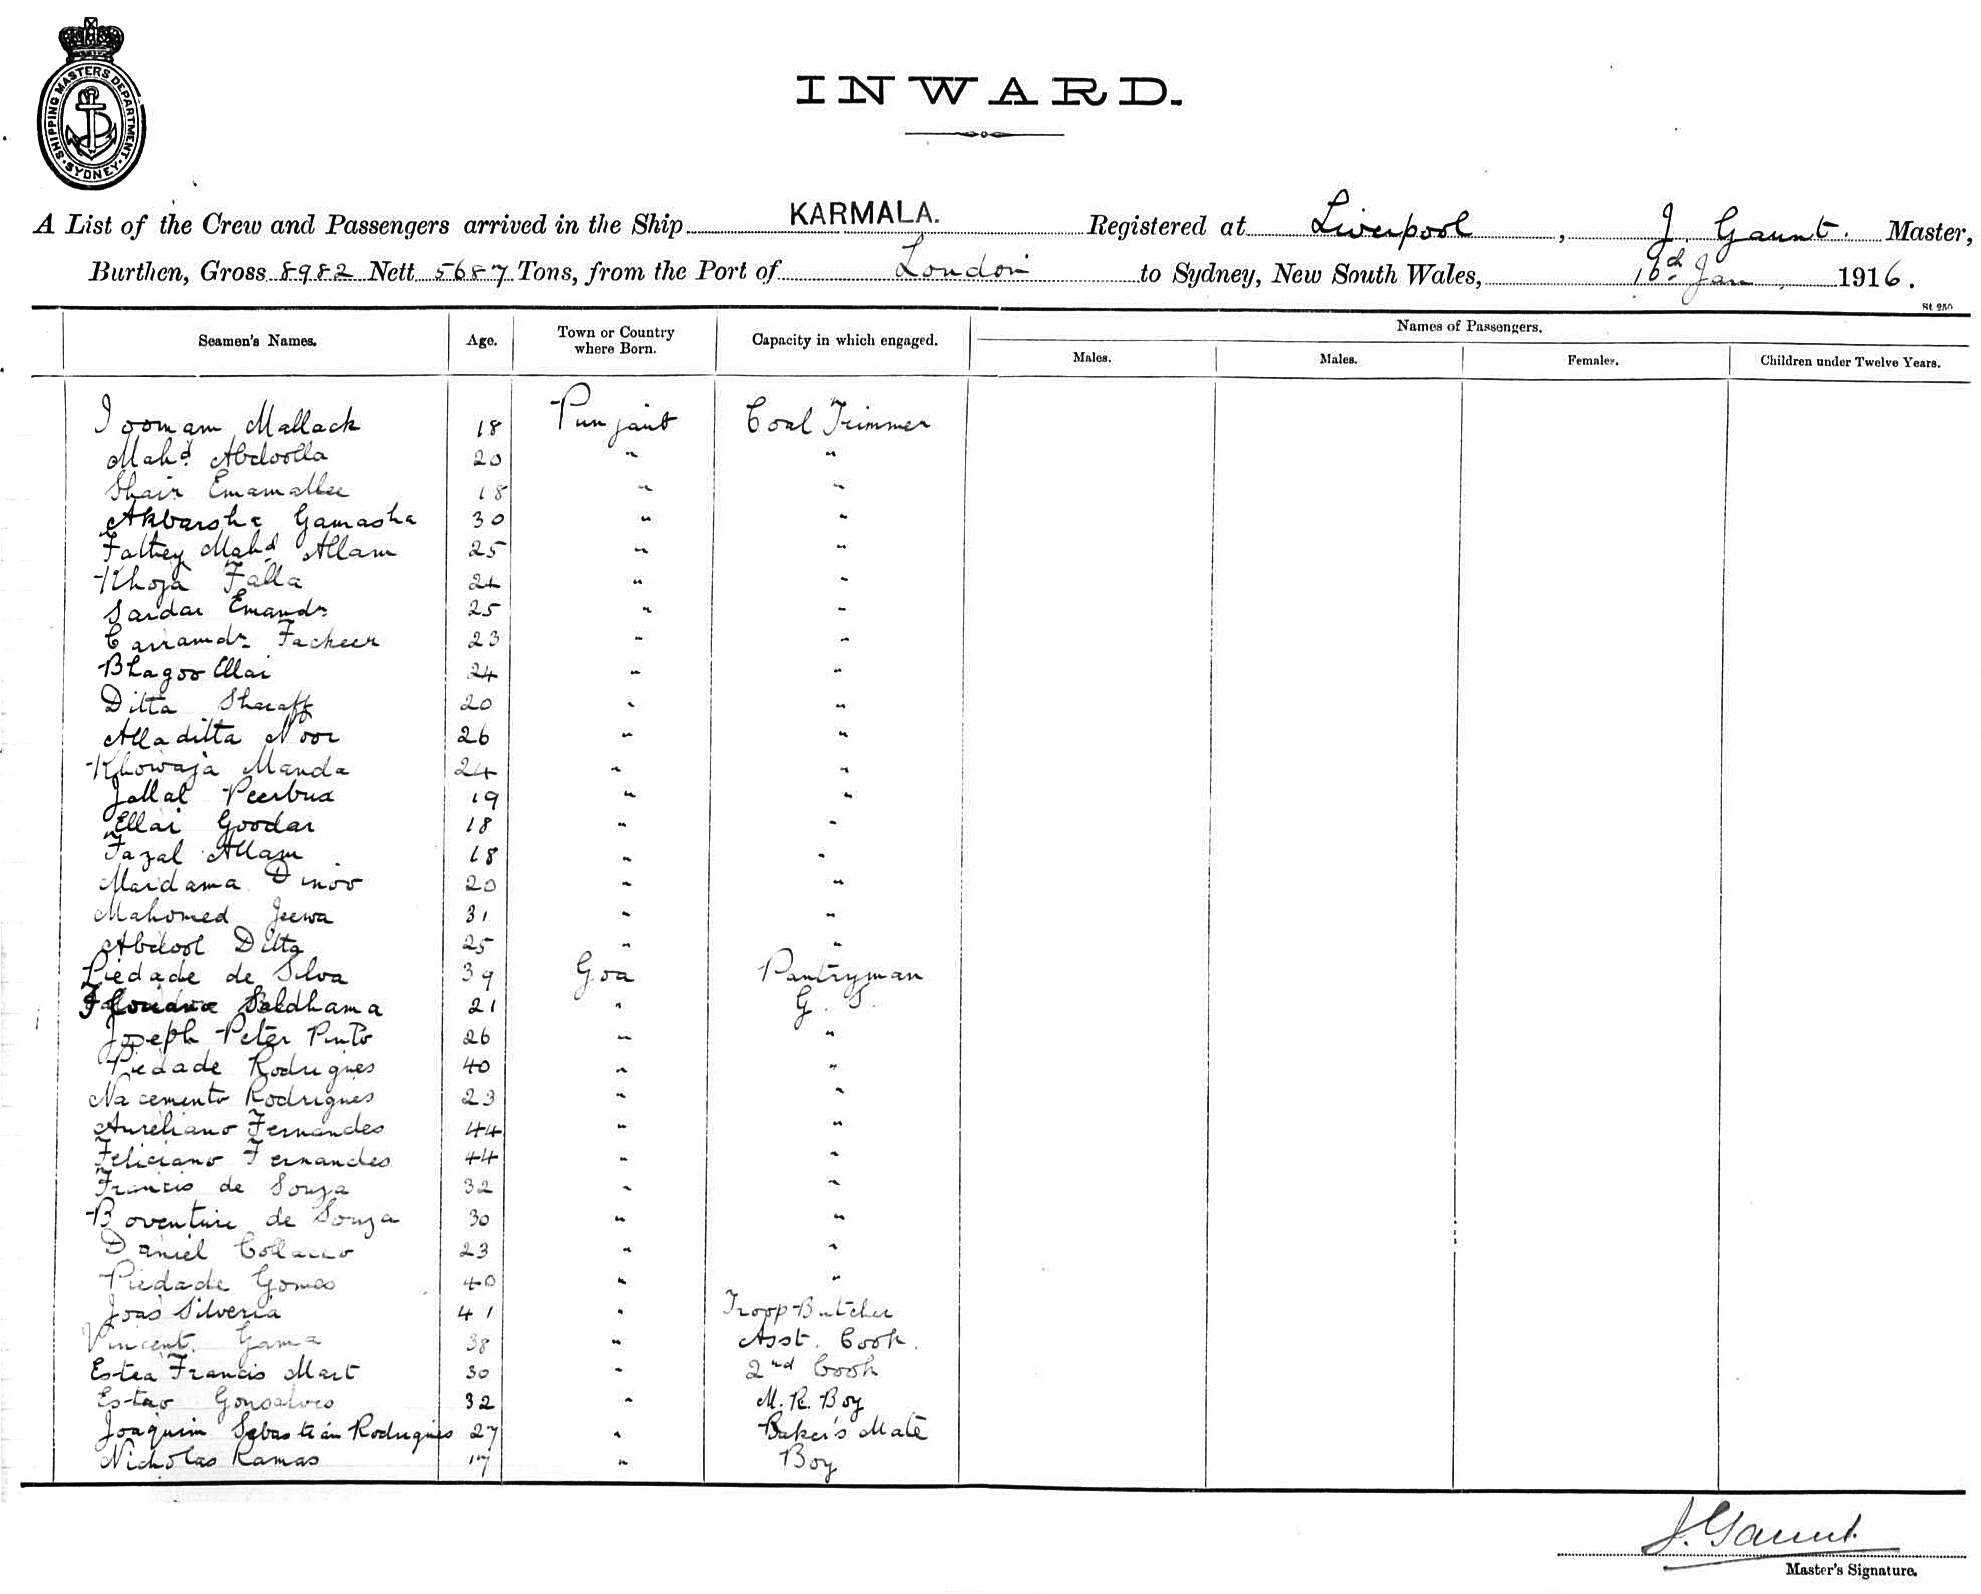 SHIPPING MASTERS DEPARTMENT. SYDNEY
INWARD.
A List of the Crew and Passengers arrived in the Ship KARMALA. Registered at Liverpool, J Gaunt. Master,
Burthen, Gross 8982 Nett 5687 Tons, from the Port of London to Sydney, New South Wales, 16th Jan 1916.
St 250
Seamen's Names. Age. Town or Country where Born. Capacity in which engaged. Names of Passengers.
Males. Males. Females. Children under Twelve Years.
Joomam Mallack 18 Punjaub Coal Trimmer
Mahd Abdoolla 20 " "
Shair Emamallee 18 " "
Akbarsha Gamasha 30 " "
Fattey Mahd Allam 25 " "
Khoja Falla 24 " "
Sardar Emamdn 25 " "
Carramdn Fackeer 23 " "
Bhagoo Ellai 24 " "
Ditta Sharaff 20 " "
Alladitta Noor 26 " "
Khowaja Manda 24 " "
Jallal Peerbux 19 " "
Ellai Goodar 18 " "
Fazal Allam 18 " "
Mardama Dinoo 20 " "
Mahomed Jeewa 31 " "
Abdool Ditta 25 " "
Piedade de Silva 39 Goa Pantryman
Saldhama 21 " G. S.
Joseph Peter Pinto 26 " "
Piedade Rodrigues 40 " "
Nacemento Rodrigues 23 " "
Aureliano Fernandes 44 " "
Feliciano Fernandes 44 " "
Francis de Souza 32 " "
Boventure de Souza 30 " "
Daniel Collacco 23 " "
Piedade Gomes 40 " "
Joas Silveria 41 " Troop Butcher
Vincent Gama 38 " Asst. Cook.
Estea Francis Mart 30 " 2nd Cook
Estao Gonsalves 32 " M. R. Boy
Joaquim Sebastian Rodrigues 27 " Baker's Mate
Nicholas Ramas 17 " Boy
J. Gaunt.
Master's Signature.